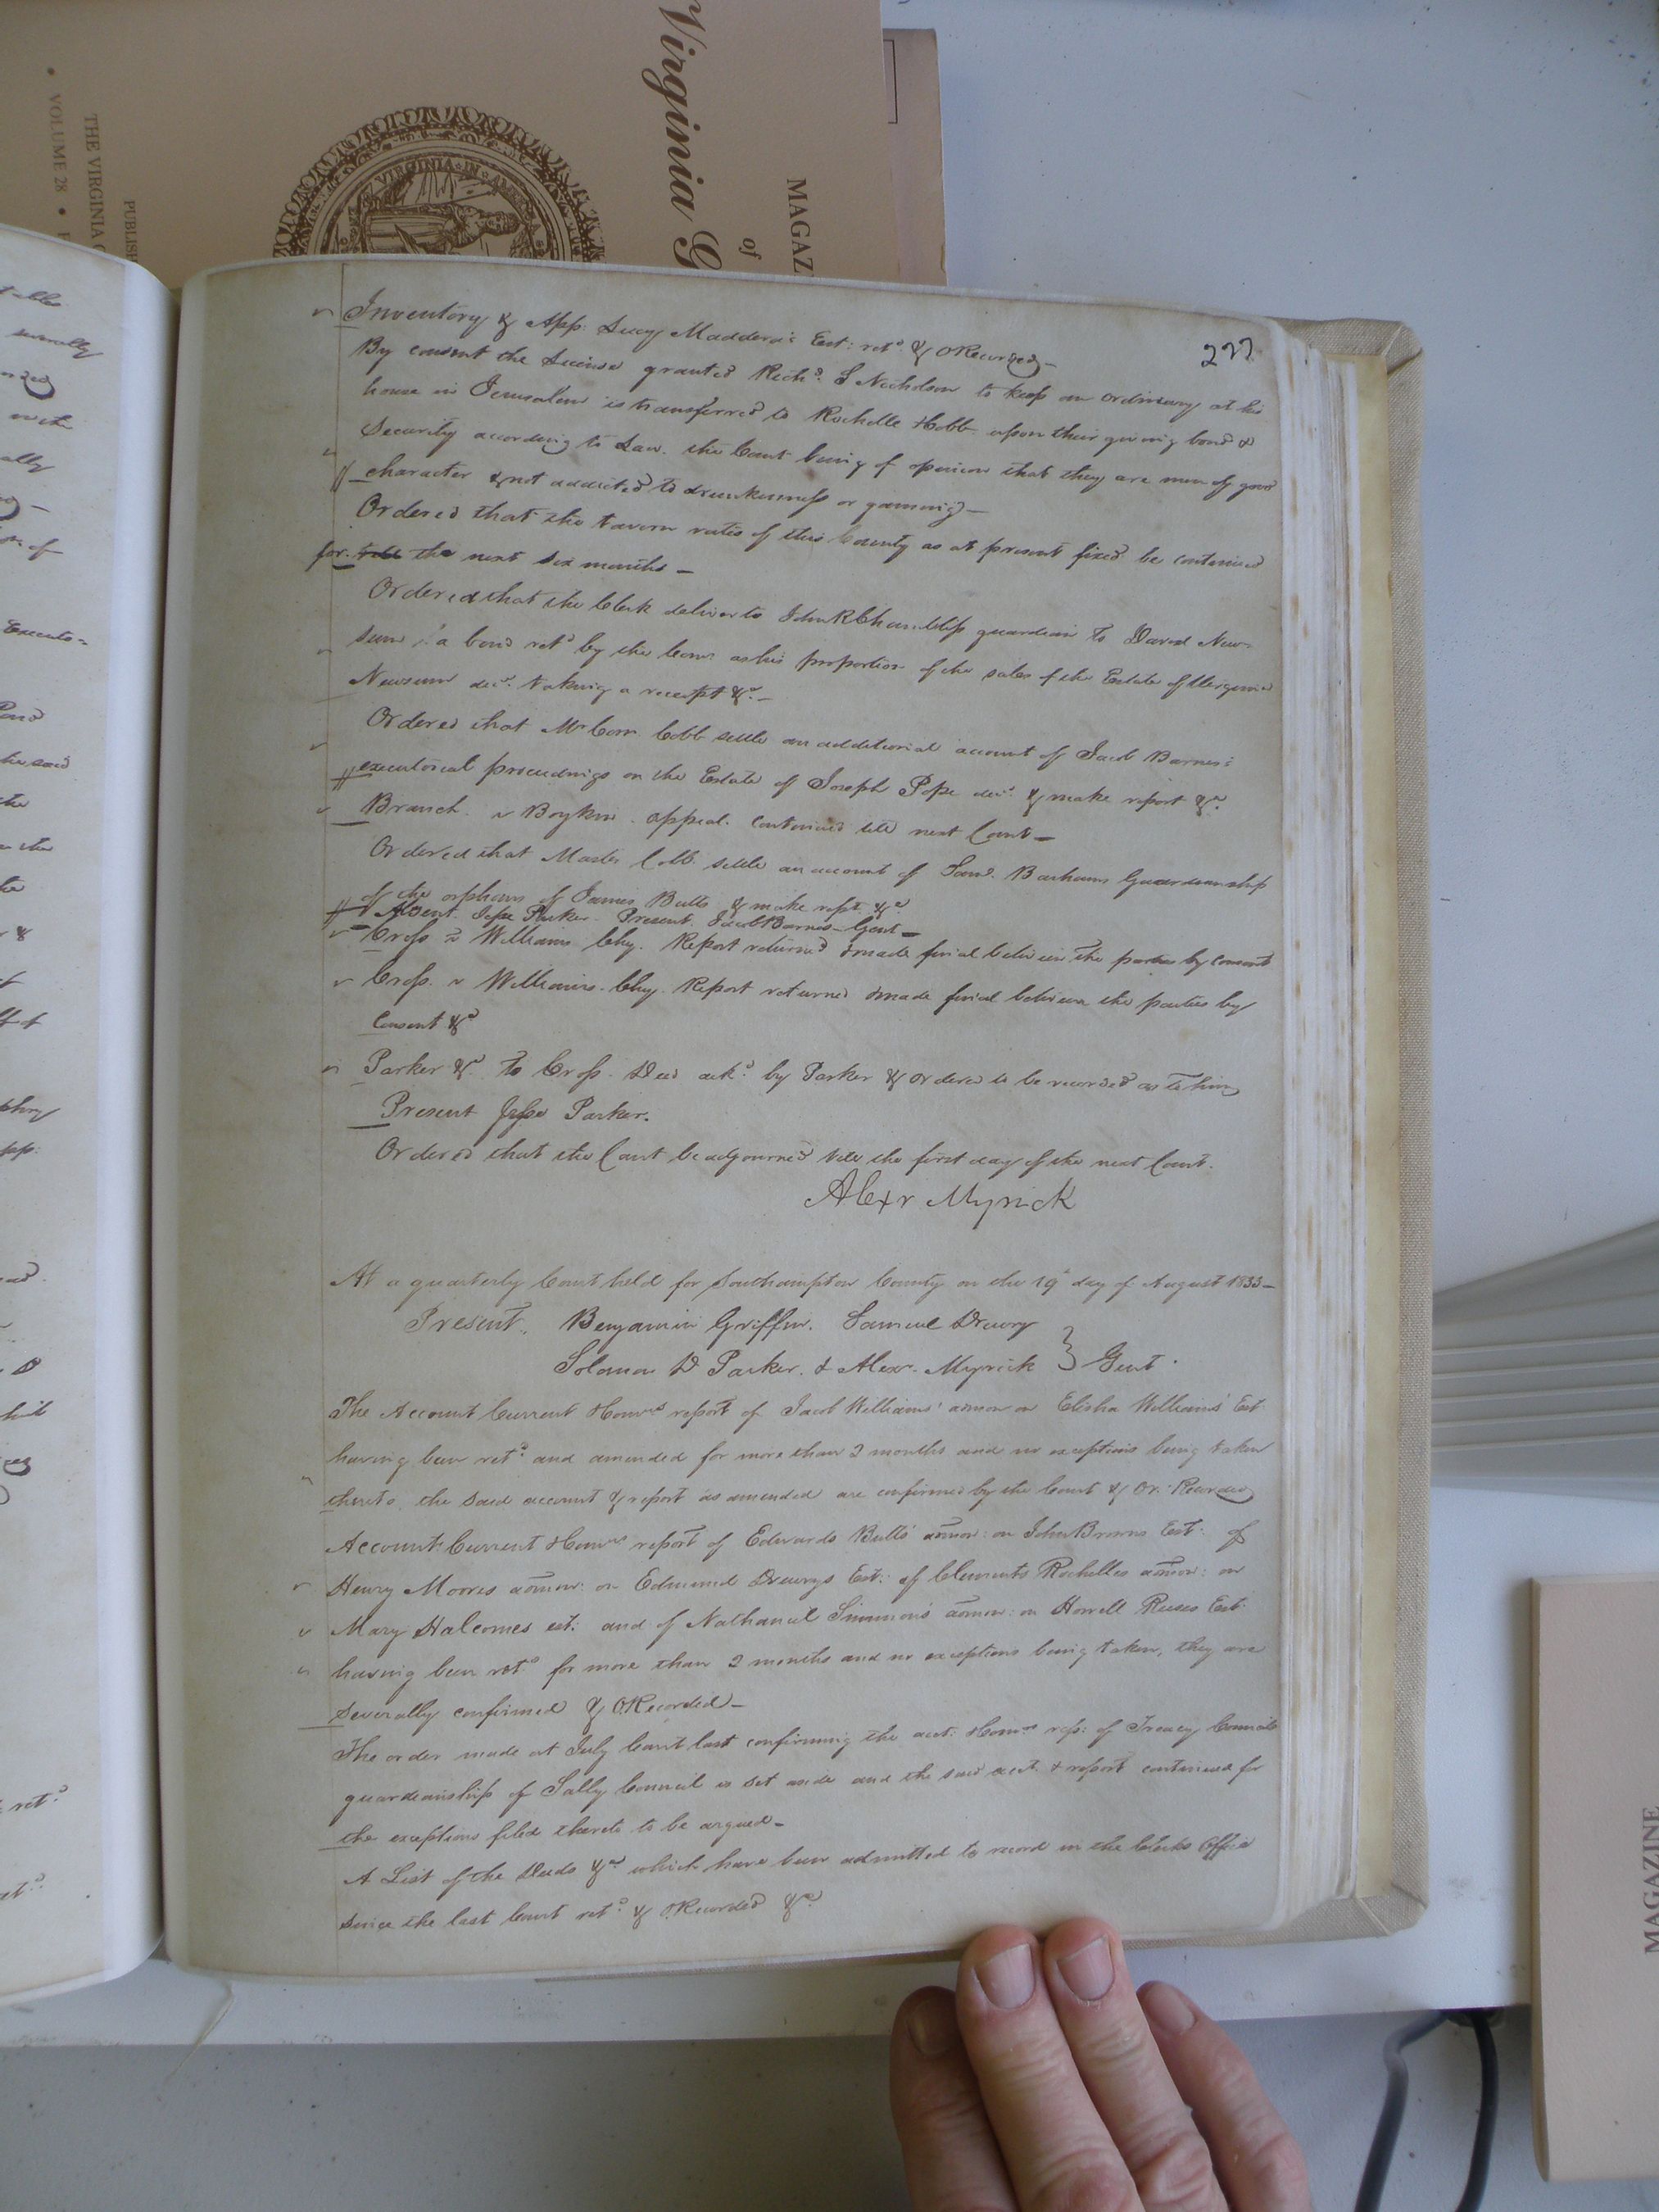 Virginia G
of
MAGAZ
PUBLISH
THE VIRGINIA
• VOLUME 28 •
VIRGINIA IN
227
Inventory & App: Lucy Maddera's Est: retd. & ORecorded—
By consent the License granted Richd. S Nicholson to keep an ordinary at his
house in Jerusalem is transferred to Rochelle & Cobb upon their giving bond &
Security according to Law. the Court being of opinion that they are men of good
character & not addicted to drunkenness or gaming—
Ordered that the tavern rates of this County as at present fixed be continued
for the next six months—
Ordered that the Clerk deliver to John R Chambliss guardian to David New-
sum a bond retd by the Comrs as his proportion of the sales of the Estate of
Newsum decd. taking a receipt &c.—
Ordered that Mr Com. Cobb settle an additional account of Jacob Barnes's
executorial proceedings on the Estate of Joseph Pope decd. & make report &c.
Branch v Boykin. appeal. Continued till next Court—
Ordered that Master Cobb settle an account of Saml. Barhams Guardianship
of the orphans of James Butts & make rept. &c.
Absent. Jesse Parker. Present. Jacob Barnes—Gent—
Cross v Williams Chy. Report returned & made final between the parties by consent
Cross. v Williams. Chy. Report returned & made final between the parties by
Consent &c
Parker &c. to Cross. Deed ackd. by Parker & ordered to be recorded as to him
Present Jesse Parker.
Ordered that the Court be adjourned till the first day of the next Court.
Alexr Myrick
At a quarterly Court held for Southampton County on the 19th day of August 1833—
Present. Benjamin Griffin. Samuel Drewry
Solomon D Parker. & Alexr. Myrick } Gent.
The Account Current & Comrs report of Jacob Williams' admor on Elisha Williams' Est:
having been retd. and amended for more than 2 months and no exceptions being taken
thereto, the said account & report as amended are confirmed by the Court & Or. Recorded
Account Current & Comrs report of Edwards Butts' admor: on John Browns Est: of
Henry Moores admor: on Edmund Drewrys Est: of Clements Rochelles admor: on
Mary Halcomes est. and of Nathaniel Simmons' admor: on Howell Reeses Est:
having been retd. for more than 2 months and no exceptions being taken, they are
severally confirmed & ORecorded—
The order made at July Court last confirming the acct. & Comrs rep: of Council
guardianship of Sally Council is set aside and the said acct. & report continued for
the exceptions filed thereto to be argued—
A List of the Deeds &c which have been admitted to record in the Clerks Office
since the last Court retd. & ORecorded &c.
MAGAZINE